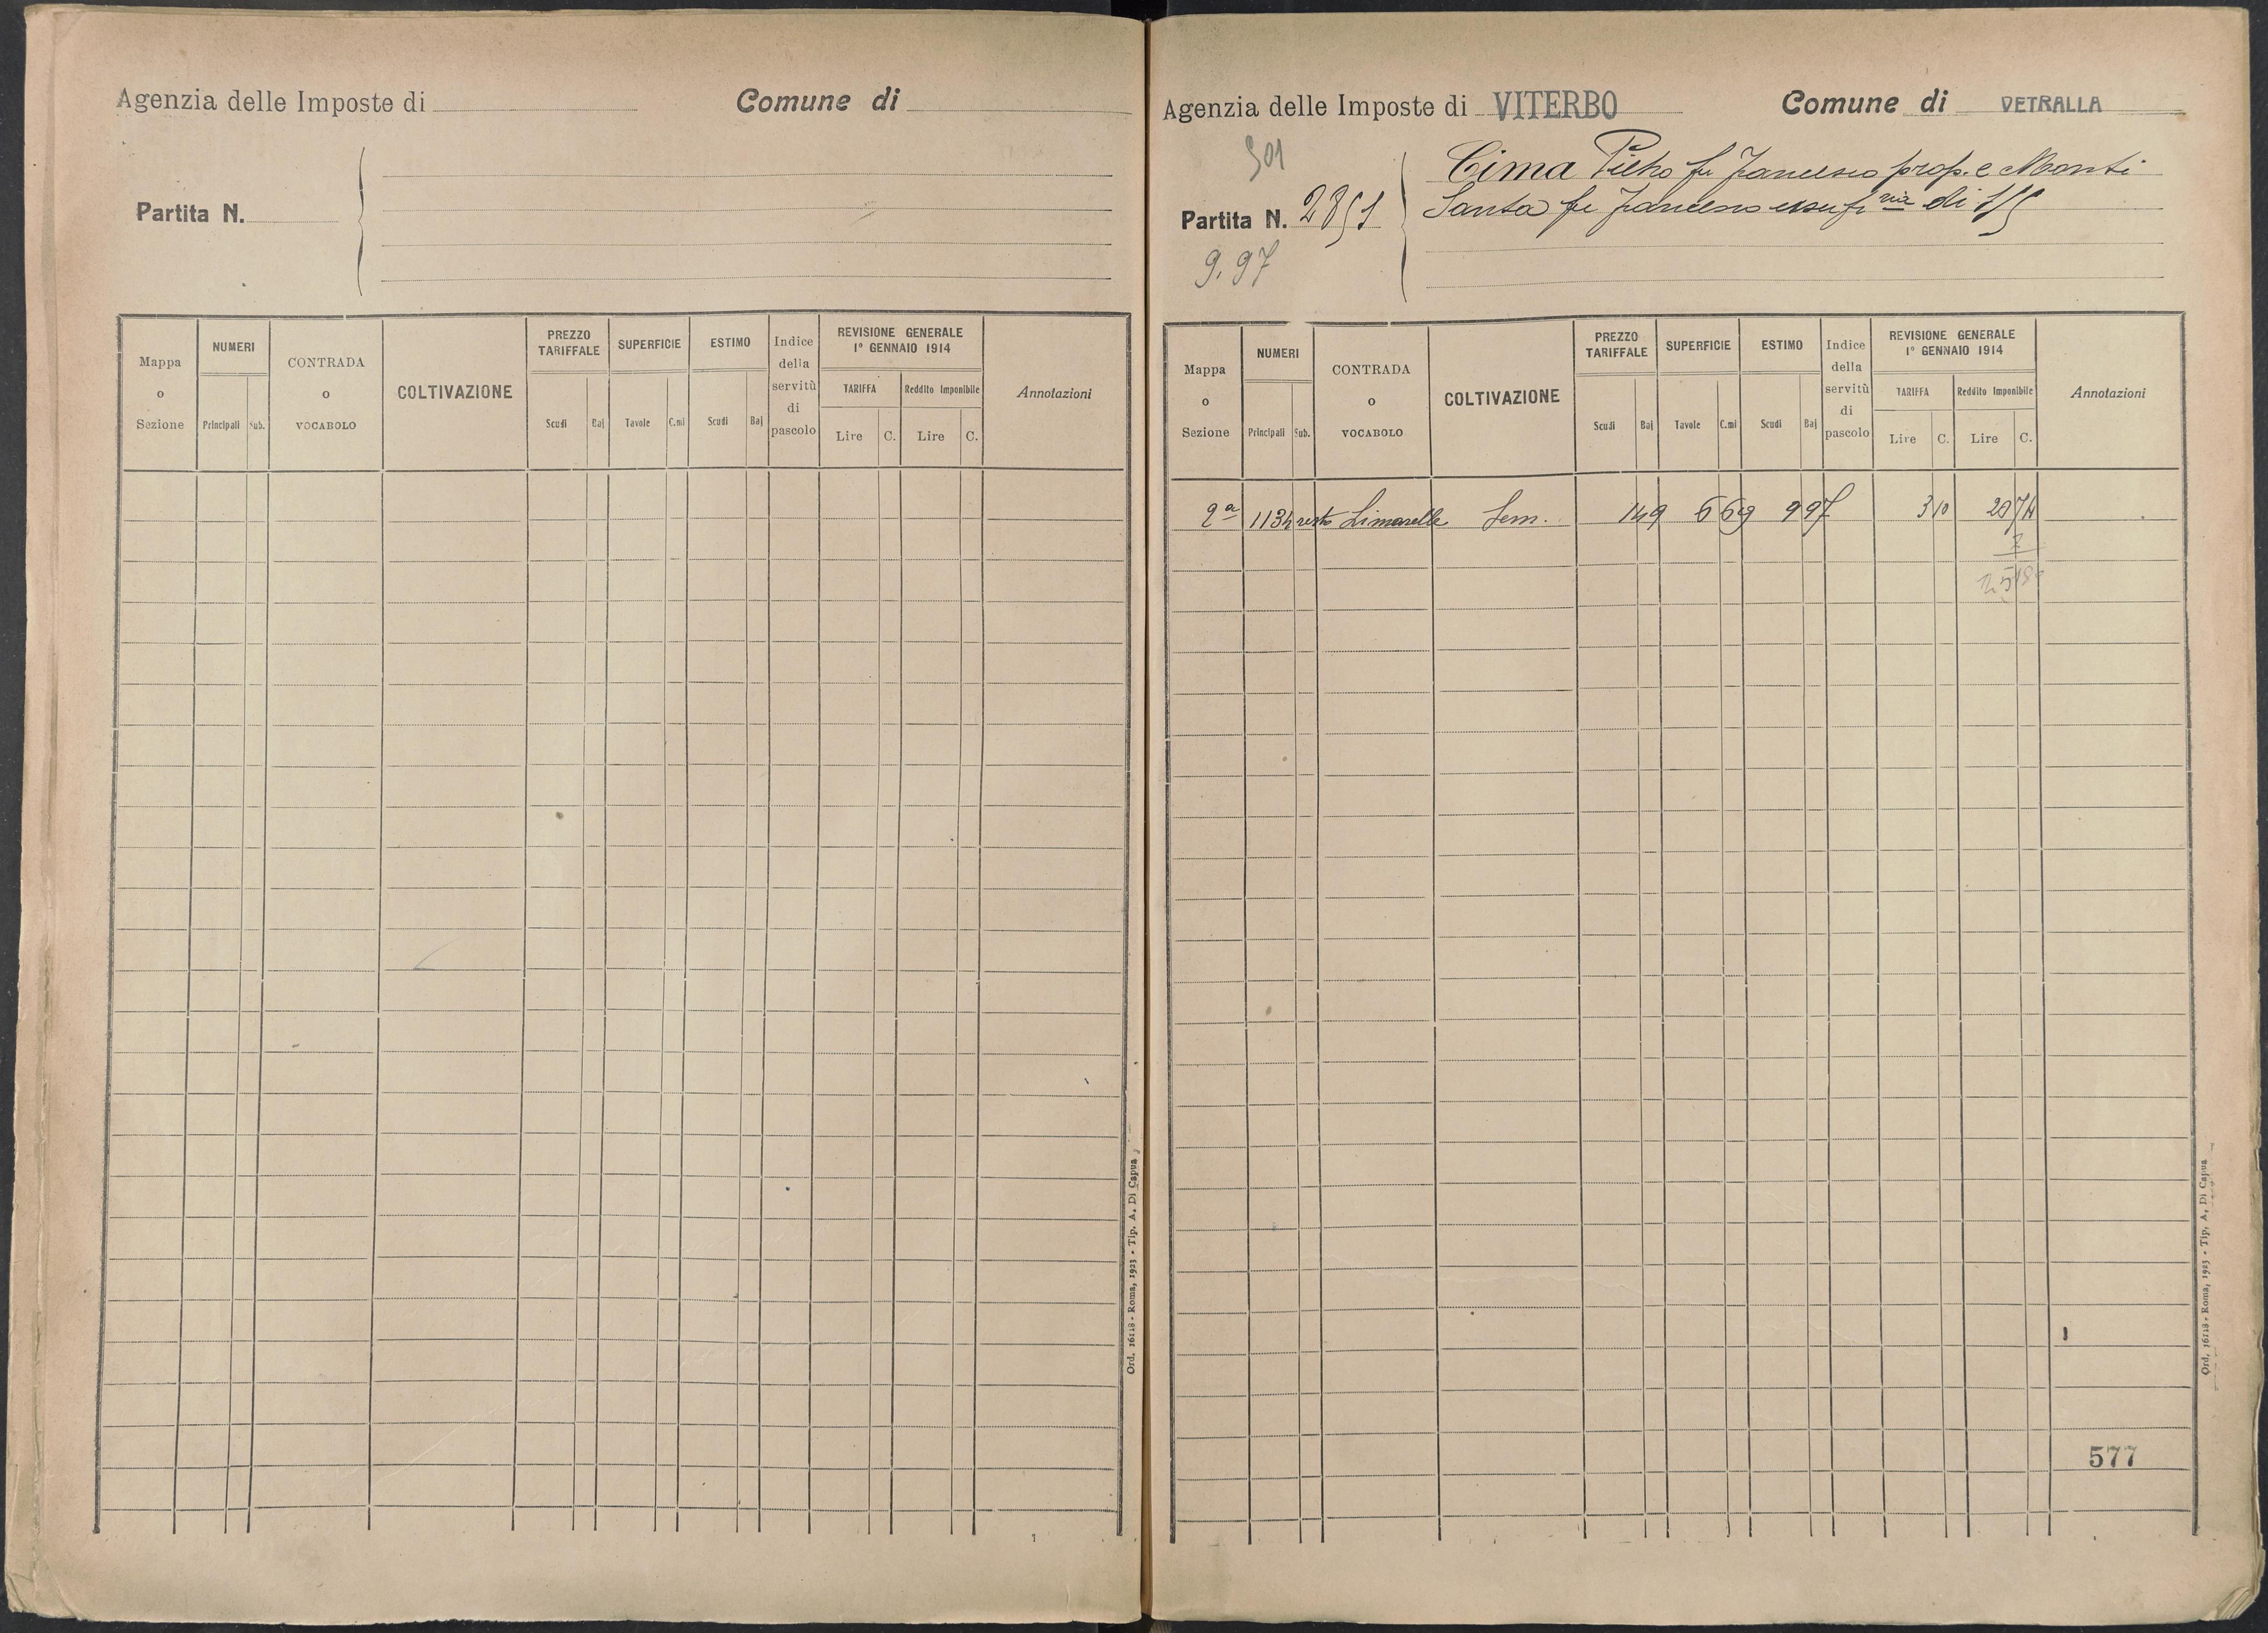 Agenzia delle Imposte di
Comune di
Partita N.
Mappa o Sezione
NUMERI
Principali
Sub.
CONTRADA o VOCABOLO
COLTIVAZIONE
PREZZO TARIFFALE
Scudi
Baj
SUPERFICIE
Tavole
C.mi
ESTIMO
Scudi
Baj
Indice della servitù di pascolo
REVISIONE GENERALE
1° GENNAIO 1914
TARIFFA
Lire
C.
Reddito Imponibile
Lire
C.
Annotazioni
Ord. 16118 - Roma, 1923 - Tip. A. Di Capua
Agenzia delle Imposte di VITERBO
Comune di VETRALLA
901
Partita N. 2851
9.97
Cima Pietro fu Francesco prop. e Monti
Santa fu Francesco usuf ria di 1/5
Mappa o Sezione
NUMERI
Principali
Sub.
CONTRADA o VOCABOLO
COLTIVAZIONE
PREZZO TARIFFALE
Scudi
Baj
SUPERFICIE
Tavole
C.mi
ESTIMO
Scudi
Baj
Indice della servitù di pascolo
REVISIONE GENERALE
1° GENNAIO 1914
TARIFFA
Lire
C.
Reddito Imponibile
Lire
C.
Annotazioni
2a 1134 resto Limarelle Sem. 1 49 6 69 9 97 3 10 20 74
577
Ord. 16118 - Roma, 1923 - Tip. A. Di Capua